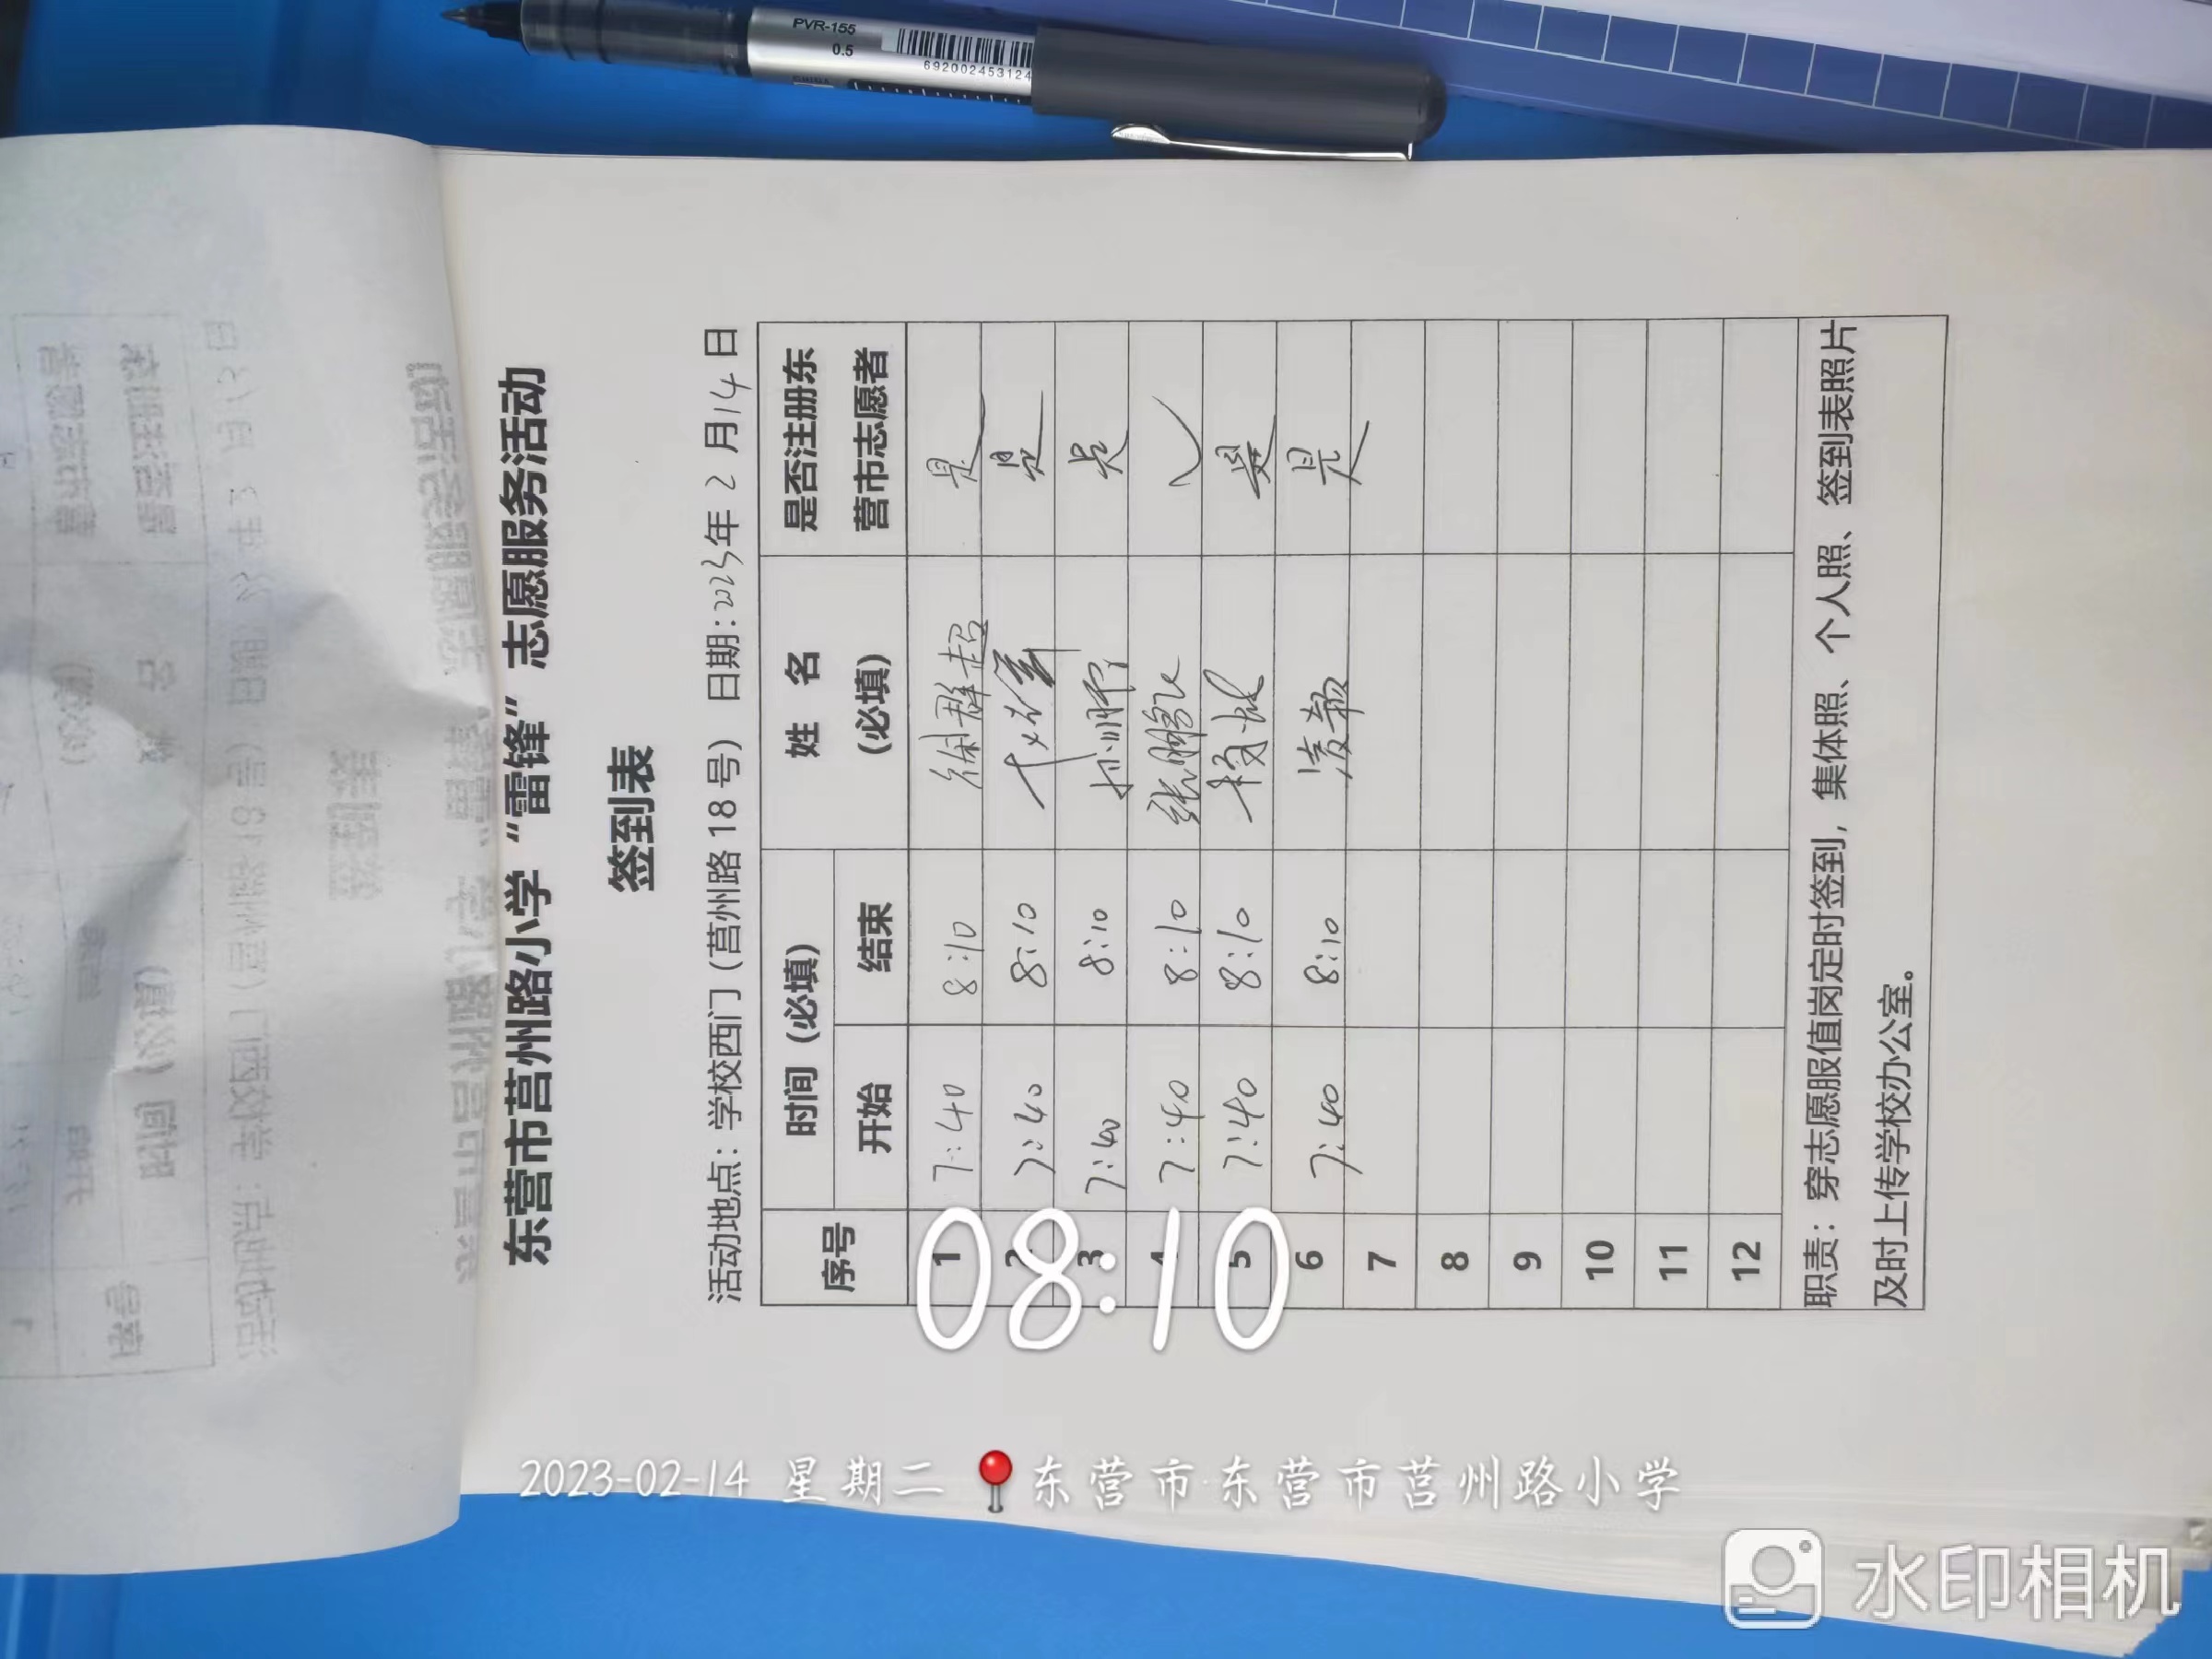 PVR-155
0.5
692002453124
东营市莒州路小学“雷锋”志愿服务活动
签到表
活动地点：学校西门（莒州路18号） 日期：2023年2月14日
序号 时间（必填） 姓 名（必填） 是否注册东营市志愿者
开始 结束
1 7:40 8:10 徐群超 是
2 7:40 8:10 是
3 7:40 8:10 是
4 7:40 8:10 张鹏飞 ✓
5 7:40 8:10 是
6 7:40 8:10 凌敏 是
7
8
9
10
11
12
职责：穿志愿服值岗定时签到，集体照、个人照、签到表照片
及时上传学校办公室。
08:10
2023-02-14 星期二 东营市·东营市莒州路小学
水印相机